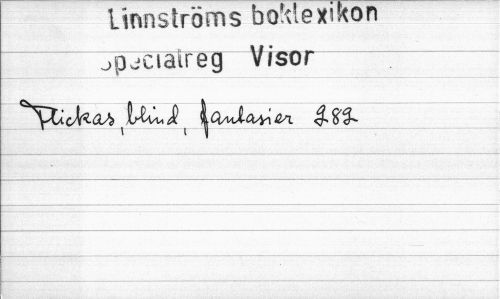 Linnströms boklexikon
Specialreg Visor
Flickas, blind, fantasier 282